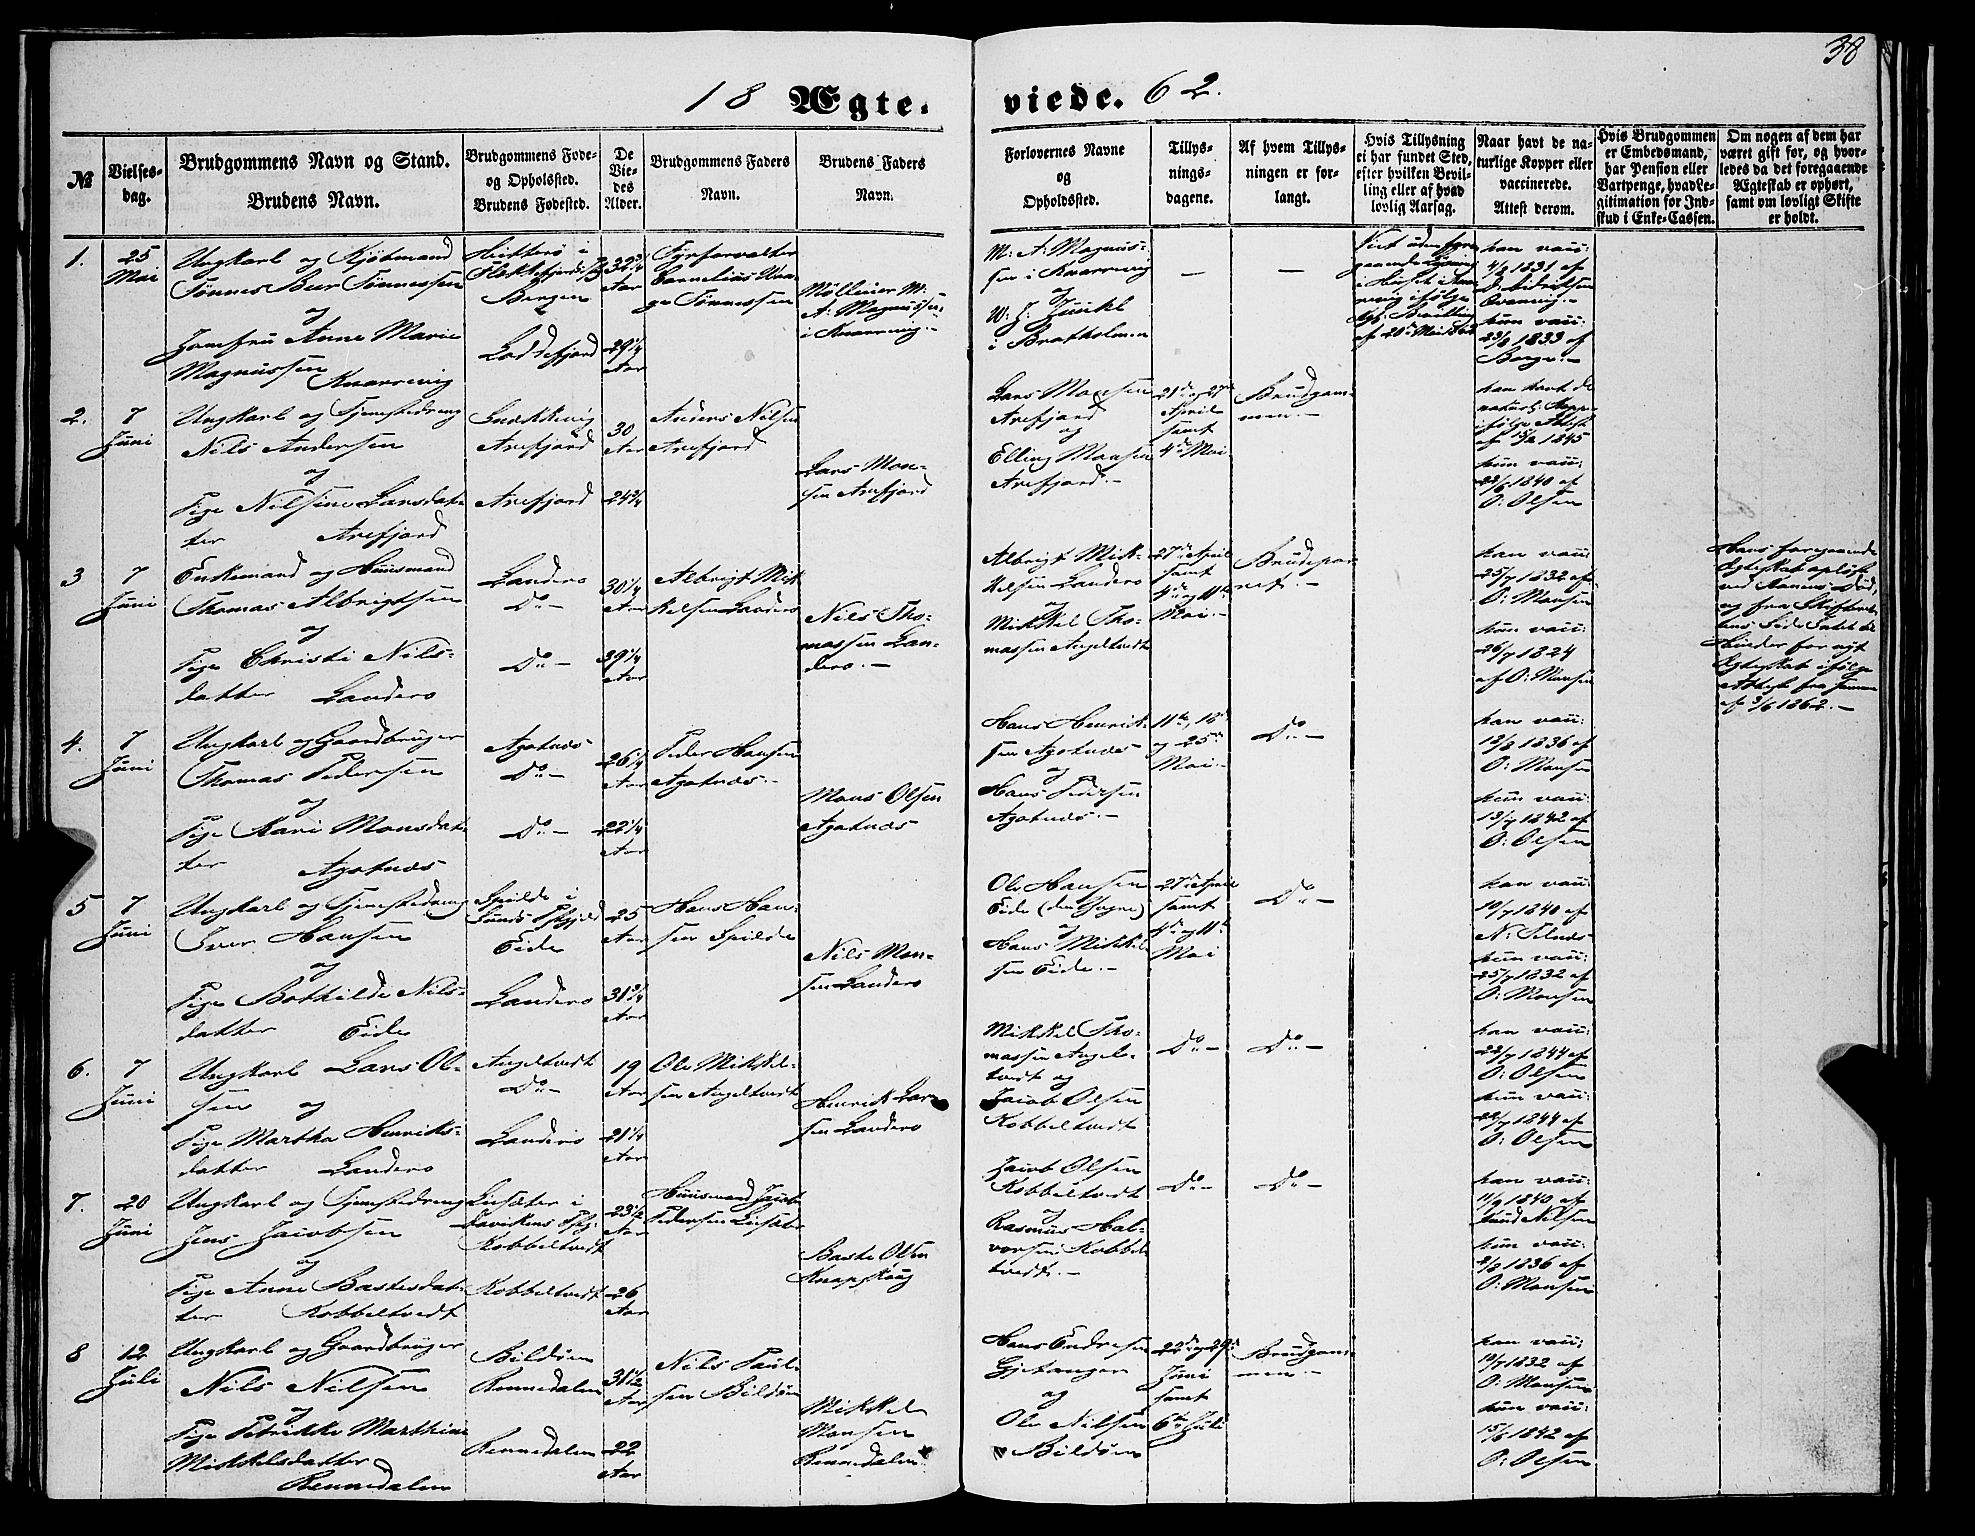 38
18 Ægte-
viede. 62.
№
Vielses-
dag.
Brudgommens Navn og Stand.
Brudens Navn.
Brudgommens Føde-
og Opholsted.
Brudens Fødested.
De
Vie-
des
Alder.
Brudgommens Faders
Navn.
Brudens Faders
Navn.
Forlovernes Navne
og
Opholdssted.
Tillys-
nings-
dagene.
Af hvem Tillys-
ningen er for-
langt.
Hvis Tillysning
ei har fundet Sted,
efter hvilken Bevil-
ling eller af hvad
lovlig Aarsag.
Naar havt de na-
turlige Kopper eller
vaccinerede.
Attest derom.
Hvis Brudgommen
er Embedsmand,
har Pension eller
Vartpenge, hvad Le-
gitimation for Ind-
skud i Enke-Cassen.
Om nogen af dem har
været gift før, og hvor-
ledes da det foregaaende
Ægteskab er ophørt,
samt om lovligt Skifte
er holdt.
1.
25
Mai
Ungkarl og Kjøbmand
Tønnes Beer Tønnessen
og
Jomfru Anne Marie
Magnussen
Knarrevig
Hitterø i
Bergen
Loddefjord
32¾
Aar
29¼
Aar
Fyrforvalter
Cornelius
Tønnessen
Mølleier M:
A: Magnussen
i Knarrevig.-
M: A: Magnus-
sen i Knarrevig
og
i Bratholmen
—
—
kgl: Bevilling
han vacc:
4/8 1831 af
hun vacc:
23/8 1833 af
2.
7
Juni
Ungkarl og Tjenestedreng
Nils Andersen
og
Pige Nilsine Larsdat-
ter Arefjord
Arefjord
Arefjord
30
Aar
24¾
Anders Nilsen
Arefjord
Lars Mon-
sen Arefjord
Lars Monsen
Arefjord
og
Elling Monsen
Arefjord.-
21de og 27de
April
samt
4de Mai
Brudgom-
men.-
han havt de
naturl: Kopp:
ifølge Attest
af 15/2 1845
hun vacc:
22/6 1840 af
O: Olsen
3
7
Juni
Enkemand og Huusmand
Thomas Albrigtsen
og
Pige Christi Nils-
datter Landero
Landero
Do -
Do -
30¼
Aar
39¼
Aar
Albrigt Mik-
kelsen Landero
Nils Tho-
massen Lan-
dero.-
Albrigt Mik-
kelsen Landero
og
Mikkel Tho-
massen Angeltvedt
27de April
samt
4de og 11te
Mai.-
Brudepar-
ret.-
han vacc:
25/7 1832 af
O: Monsen
hun vacc:
26/7 1824
af O: Monsen
Hans foregaaende
Ægteskab opløst
ved Konens Død,
og fra Skifteret-
tens Side Intet til
Hinder for nyt
Ægteskab ifølge
Attest fra samme
af 3/6 1862.-
4.
7
Juni
Ungkarl og Gaardbruger
Thomas Pedersen
og
Pige Kari Monsdat-
ter Agotnæs
Agotnæs
Do -
Do -
26¼
Aar
22¼
Aar
Peder Hansen
Agotnæs.-
Mons Olsen
Agotnæs
Hans Henrik-
sen Agotnæs
og
Hans Pedersen
Agotnæs.-
11te, 18de
og 25de
Mai.-
Do -
han vacc:
12/8 1836 af
O: Monsen
hun vacc:
13/7 1842 af
O: Olsen
5
7
Juni
Ungkarl og Tjenestedreng
Iver Hansen
og
Pige Bothilde Nils-
datter Eide
Spilde i
Sunds Pgjld
Eide
Landero
25
Aar
31¾
Aar
Hans Han-
sen Spilde
Nils Mon-
sen Landero
Ole Hansen
Eide
og
Hans Mikkel-
sen Eide.-
27de April
samt
4de og 11te
Mai
Do -
han vacc:
19/7 1840 af
hun vacc:
25/7 1832 af
O: Monsen
6.
7
Juni
Ungkarl Lars Ol-
sen og
Pige Martha Henriks-
datter Landero
Angeltvedt
Do -
Landero
19
Aar
21¼
Aar
Ole Mikkel-
sen Angeltvedt
Henrik Lar-
sen Landero
Mikkel Tho-
massen Angel-
tvedt og
Jacob Olsen
Kobbeltvedt
Do -
Do -
han vacc:
22/7 1844 af
O: Olsen
hun vacc:
22/7 1844 af
O: Olsen
7.
20
Juni
Ungkarl og Tjenestedreng
Jens Jacobsen
og
Pige Anne Bastesdat-
ter Kobbeltvedt
Davikens Pgj:
Kobbeltvedt
Kobbeltvedt
23½
Aar
26
Aar
Huusmand Jacob
Pedersen
Baste Olsen
Knapskoug
Jacob Olsen
Kobbeltvedt
og
Rasmus Hal-
vorsen Kobbel-
tvedt.-
Do -
Do -
han vacc:
11/9 1840 af
Knud Nilsen
hun vacc:
2/8 1836 af
O: Monsen
8
12
Juli
Ungkarl og Gaardbruger
Nils Nilsen
og
Pige Petrikke Marthine
Mikkelsdatter
Rennedalen
Bildøen
Rennedalen
Rennedalen
31½
Aar
22
Aar
Nils Paul-
sen Bildøen
Mikkel
Monsen
Rennedalen
Hans Endresen
Gjetanger
og
Ole Nilsen
Bildøen
22de og 29de
Juni
samt
6te Juli
Brudgom-
men.-
han vacc:
19/7 1832 af
O: Monsen
hun vacc:
15/6 1842 af
O: Olsen